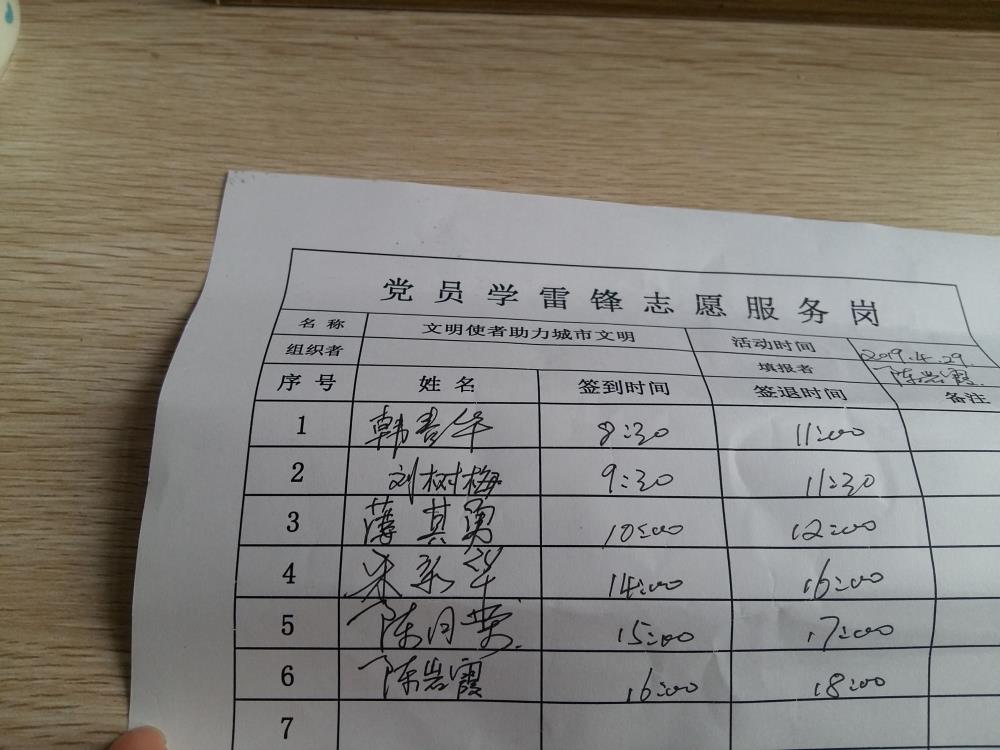 党员学雷锋志愿服务岗
名称 文明使者助力城市文明 活动时间 2019.4.29
组织者 填报者 陈岩霞
序号 姓名 签到时间 签退时间 备注
1 韩春华 8:30 11:00
2 刘树梅 9:30 11:30
3 薄其勇 10:00 12:00
4 朱新华 14:00 16:00
5 陈月荣 15:00 17:00
6 陈岩霞 16:00 18:00
7